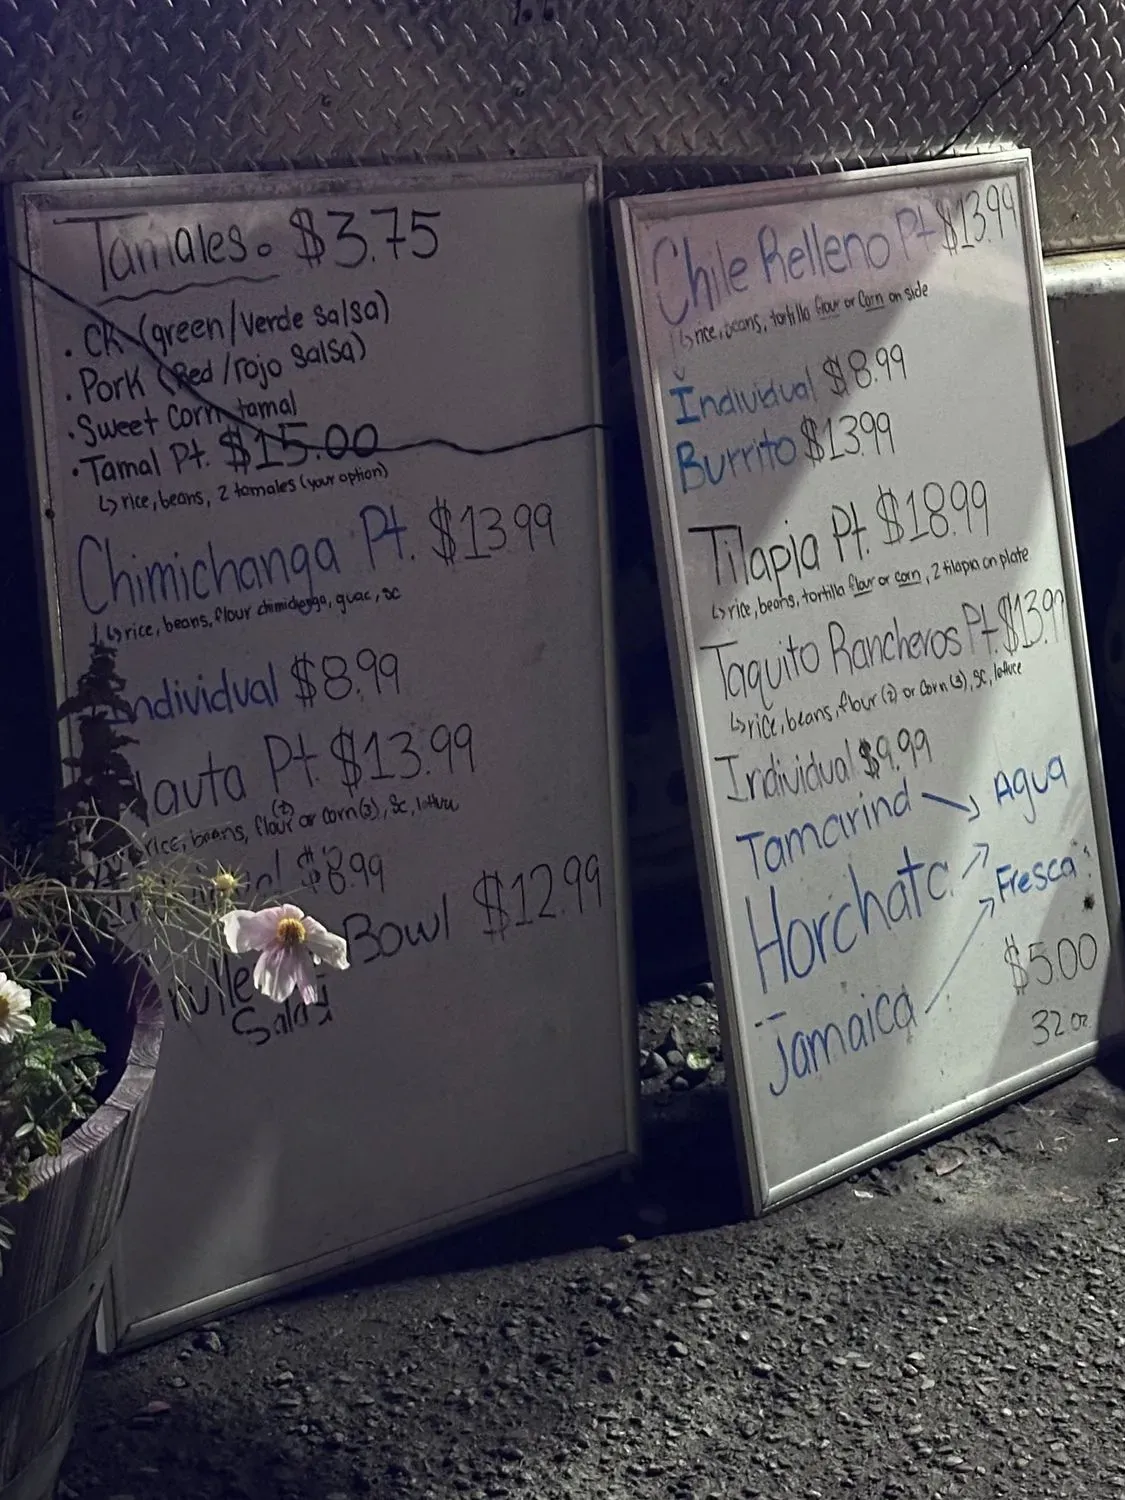 Tamales. $3.75
· CK (green/verde salsa)
· Pork (Red/rojo salsa)
· Sweet corn tamal
· Tamal Pt. $15.00
↳ rice, beans, 2 tamales (your option)
Chimichanga Pt. $13.99
↳ rice, beans, flour chimichanga, guac, sc
Individual $8.99
lauta Pt $13.99
rice, beans, flour (2) or corn (3), sc, lettuce
$8.99
Bowl $12.99
Salad
Chile Relleno Pt $13.99
↳ rice, beans, tortilla flour or corn on side
Individual $8.99
Burrito $13.99
Tilapia Pt. $18.99
↳ rice, beans, tortilla flour or corn, 2 tilapia on plate
Taquito Rancheros Pt $13.99
↳ rice, beans, flour (2) or corn (3), sc, lettuce
Individual $9.99
Tamarind → Agua
Horchata → Fresca:
Jamaica → $5.00
32 oz.